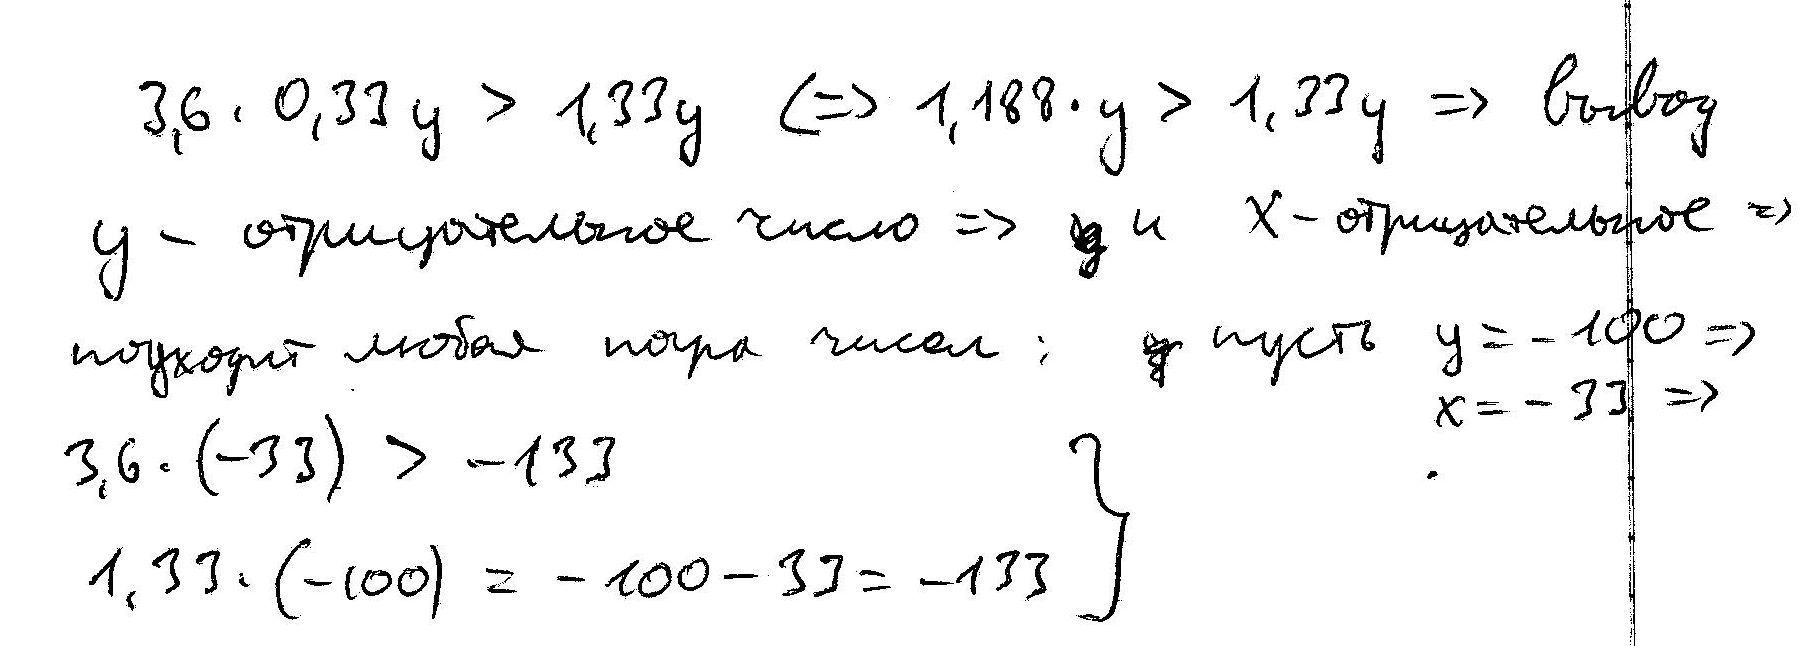 3,6 · 0,33y > 1,33y (=> 1,188 · y > 1,33y => вывод
y – отрицательное число => и x – отрицательное =>
подходит любая пара чисел : пусть y = – 100 =>
x = – 33 =>
3,6 · (–33) > –133
1,33 · (–100) = – 100 – 33 = –133